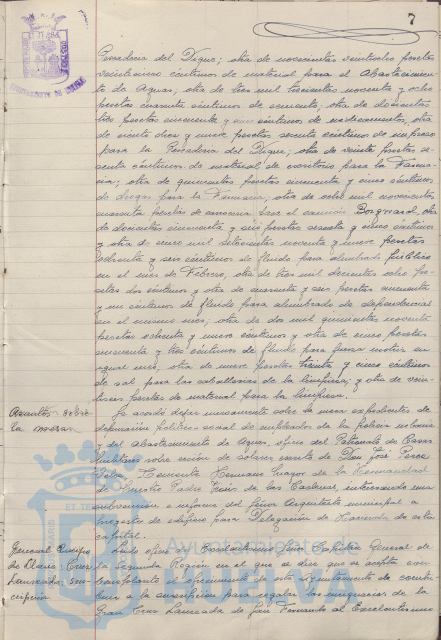 7
Pescadería del Dique; otra de novecientas veintiocho pesetas
veintinueve céntimos de material para el Abastecimien-
to de Aguas; otra de tres mil trescientas noventa y ocho
pesetas cuarenta céntimos de cemento, otra de doscientas
tres pesetas cincuenta y un céntimos de medicamentos, otra
de ciento diez y nueve pesetas sesenta céntimos de impreso
para la Pescadería del Dique; otra de veinte pesetas se-
senta céntimos de material de escritorio para la Farma-
cia; otra de quinientas pesetas cincuenta y cinco céntimos
de drogas para la Farmacia, otra de ocho mil novecientas
cuarenta pesetas de para el camión Borgward, otra
de doscientas cincuenta y seis pesetas sesenta y cinco céntimos
y otra de nueve mil setecientas noventa y nueve pesetas
ochenta y seis céntimos de fluido para alumbrado público
en el mes de Febrero, otra de tres mil doscientas ocho pe-
setas dos céntimos y otra de cuarenta y seis pesetas cincuenta
y un céntimos de fluido para alumbrado de dependencias
en el mismo mes, otra de dos mil quinientas noventa
pesetas ochenta y nueve céntimos y otra de cinco pesetas
cincuenta y tres céntimos de fluido para fuerza motriz en
igual mes, otra de nueve pesetas treinta y cinco céntimos
de sal para las caballerías de la limpieza; y otra de vein-
tiseis pesetas de material para la limpieza.
Asuntos sobre
la mesa
Se acordó dejar nuevamente sobre la mesa expedientes de
depuración político-social de empleados de la policía urbana
y del Abastecimiento de Aguas, oficio del Patronato de Casas
Militares sobre cesión de solares, escrito de Don José Ponce
Teniente Hermano Mayor de la Hermandad
de Nuestro Padre Jesús de las Cadenas interesando una
subvención e informe del Señor Arquitecto municipal a
proyecto de edificio para Delegación de Hacienda de esta
capital.
General Queipo
de Llano Cruz
Laureada sus-
cripción
Leído oficio del Excelentísimo Señor Capitán General de
la Segunda Región en el que se dice que se acepta com-
placidísimo el ofrecimiento de este Ayuntamiento de contri-
buir a la suscripción para regalar las insignias de la
Gran Cruz Laureada de San Fernando al Excelentísimo
Ayuntamiento de
HUELVA